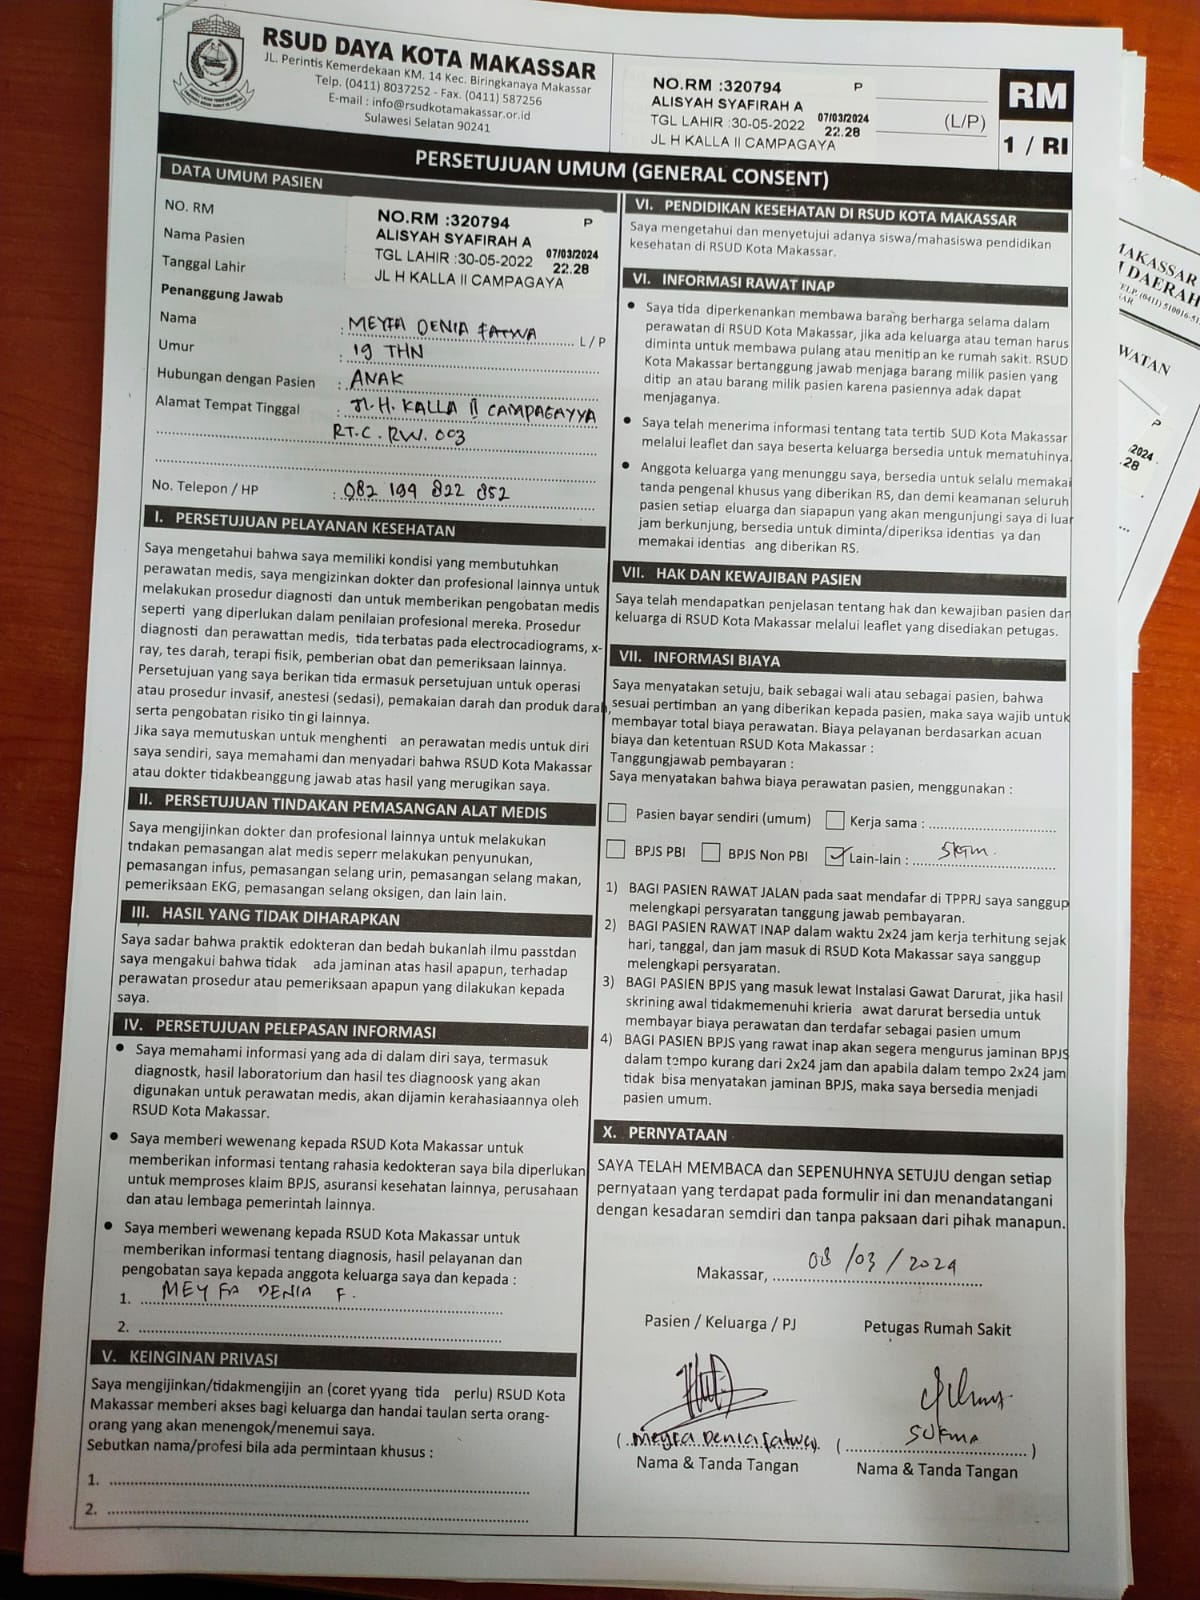 RSUD DAYA KOTA MAKASSAR
JL. Perintis Kemerdekaan KM. 14 Kec. Biringkanaya Makassar
Telp. (0411) 8037252 - Fax. (0411) 587256
E-mail : info@rsudkotamakassar.or.id
Sulawesi Selatan 90241
NO.RM :320794 P
ALISYAH SYAFIRAH A
TGL LAHIR :30-05-2022 07/03/2024 22.28
JL H KALLA II CAMPAGAYA
(L/P)
RM
1 / RI
PERSETUJUAN UMUM (GENERAL CONSENT)
DATA UMUM PASIEN
NO. RM
Nama Pasien
Tanggal Lahir
NO.RM :320794 P
ALISYAH SYAFIRAH A
TGL LAHIR :30-05-2022 07/03/2024 22.28
JL H KALLA II CAMPAGAYA
Penanggung Jawab
Nama : MEYFA DENIA FATWA L / P
Umur : 19 THN
Hubungan dengan Pasien : ANAK
Alamat Tempat Tinggal : Jl. H. KALLA II CAMPAGAYYA
RT.C. RW. 003
No. Telepon / HP : 082 199 822 852
I. PERSETUJUAN PELAYANAN KESEHATAN
Saya mengetahui bahwa saya memiliki kondisi yang membutuhkan
perawatan medis, saya mengizinkan dokter dan profesional lainnya untuk
melakukan prosedur diagnosti dan untuk memberikan pengobatan medis
seperti yang diperlukan dalam penilaian profesional mereka. Prosedur
diagnosti dan perawattan medis, tida terbatas pada electrocadiograms, x-
ray, tes darah, terapi fisik, pemberian obat dan pemeriksaan lainnya.
Persetujuan yang saya berikan tida ermasuk persetujuan untuk operasi
atau prosedur invasif, anestesi (sedasi), pemakaian darah dan produk darah,
serta pengobatan risiko tin gi lainnya.
Jika saya memutuskan untuk menghenti an perawatan medis untuk diri
saya sendiri, saya memahami dan menyadari bahwa RSUD Kota Makassar
atau dokter tidakbeanggung jawab atas hasil yang merugikan saya.
II. PERSETUJUAN TINDAKAN PEMASANGAN ALAT MEDIS
Saya mengijinkan dokter dan profesional lainnya untuk melakukan
tndakan pemasangan alat medis seperr melakukan penyunukan,
pemasangan infus, pemasangan selang urin, pemasangan selang makan,
pemeriksaan EKG, pemasangan selang oksigen, dan lain lain.
III. HASIL YANG TIDAK DIHARAPKAN
Saya sadar bahwa praktik edokteran dan bedah bukanlah ilmu passtdan
saya mengakui bahwa tidak ada jaminan atas hasil apapun, terhadap
perawatan prosedur atau pemeriksaan apapun yang dilakukan kepada
saya.
IV. PERSETUJUAN PELEPASAN INFORMASI
• Saya memahami informasi yang ada di dalam diri saya, termasuk
diagnostk, hasil laboratorium dan hasil tes diagnoosk yang akan
digunakan untuk perawatan medis, akan dijamin kerahasiaannya oleh
RSUD Kota Makassar.
• Saya memberi wewenang kepada RSUD Kota Makassar untuk
memberikan informasi tentang rahasia kedokteran saya bila diperlukan
untuk memproses klaim BPJS, asuransi kesehatan lainnya, perusahaan
dan atau lembaga pemerintah lainnya.
• Saya memberi wewenang kepada RSUD Kota Makassar untuk
memberikan informasi tentang diagnosis, hasil pelayanan dan
pengobatan saya kepada anggota keluarga saya dan kepada :
1. MEYFA DENIA F.
2.
V. KEINGINAN PRIVASI
Saya mengijinkan/tidakmengijin an (coret yyang tida perlu) RSUD Kota
Makassar memberi akses bagi keluarga dan handai taulan serta orang-
orang yang akan menengok/menemui saya.
Sebutkan nama/profesi bila ada permintaan khusus :
1.
2.
VI. PENDIDIKAN KESEHATAN DI RSUD KOTA MAKASSAR
Saya mengetahui dan menyetujui adanya siswa/mahasiswa pendidikan
kesehatan di RSUD Kota Makassar.
VI. INFORMASI RAWAT INAP
• Saya tida diperkenankan membawa barang berharga selama dalam
perawatan di RSUD Kota Makassar, jika ada keluarga atau teman harus
diminta untuk membawa pulang atau menitip an ke rumah sakit. RSUD
Kota Makassar bertanggung jawab menjaga barang milik pasien yang
ditip an atau barang milik pasien karena pasiennya adak dapat
menjaganya.
• Saya telah menerima informasi tentang tata tertib SUD Kota Makassar
melalui leaflet dan saya beserta keluarga bersedia untuk mematuhinya.
• Anggota keluarga yang menunggu saya, bersedia untuk selalu memakai
tanda pengenal khusus yang diberikan RS, dan demi keamanan seluruh
pasien setiap eluarga dan siapapun yang akan mengunjungi saya di luar
jam berkunjung, bersedia untuk diminta/diperiksa identias ya dan
memakai identias ang diberikan RS.
VII. HAK DAN KEWAJIBAN PASIEN
Saya telah mendapatkan penjelasan tentang hak dan kewajiban pasien dan
keluarga di RSUD Kota Makassar melalui leaflet yang disediakan petugas.
VII. INFORMASI BIAYA
Saya menyatakan setuju, baik sebagai wali atau sebagai pasien, bahwa
sesuai pertimban an yang diberikan kepada pasien, maka saya wajib untuk
membayar total biaya perawatan. Biaya pelayanan berdasarkan acuan
biaya dan ketentuan RSUD Kota Makassar :
Tanggungjawab pembayaran :
Saya menyatakan bahwa biaya perawatan pasien, menggunakan :
Pasien bayar sendiri (umum) Kerja sama :
BPJS PBI BPJS Non PBI Lain-lain :
1) BAGI PASIEN RAWAT JALAN pada saat mendafar di TPPRJ saya sanggup
melengkapi persyaratan tanggung jawab pembayaran.
2) BAGI PASIEN RAWAT INAP dalam waktu 2x24 jam kerja terhitung sejak
hari, tanggal, dan jam masuk di RSUD Kota Makassar saya sanggup
melengkapi persyaratan.
3) BAGI PASIEN BPJS yang masuk lewat Instalasi Gawat Darurat, jika hasil
skrining awal tidakmemenuhi krieria awat darurat bersedia untuk
membayar biaya perawatan dan terdafar sebagai pasien umum
4) BAGI PASIEN BPJS yang rawat inap akan segera mengurus jaminan BPJS
dalam tempo kurang dari 2x24 jam dan apabila dalam tempo 2x24 jam
tidak bisa menyatakan jaminan BPJS, maka saya bersedia menjadi
pasien umum.
X. PERNYATAAN
SAYA TELAH MEMBACA dan SEPENUHNYA SETUJU dengan setiap
pernyataan yang terdapat pada formulir ini dan menandatangani
dengan kesadaran semdiri dan tanpa paksaan dari pihak manapun.
Makassar, 08 / 03 / 2024
Pasien / Keluarga / PJ Petugas Rumah Sakit
( Meyfa Denia Fatwa ) ( SUKMA )
Nama & Tanda Tangan Nama & Tanda Tangan
MAKASSAR
DAERAH
TELP. (0411) 510016-51
WATAN
P
2024
.28